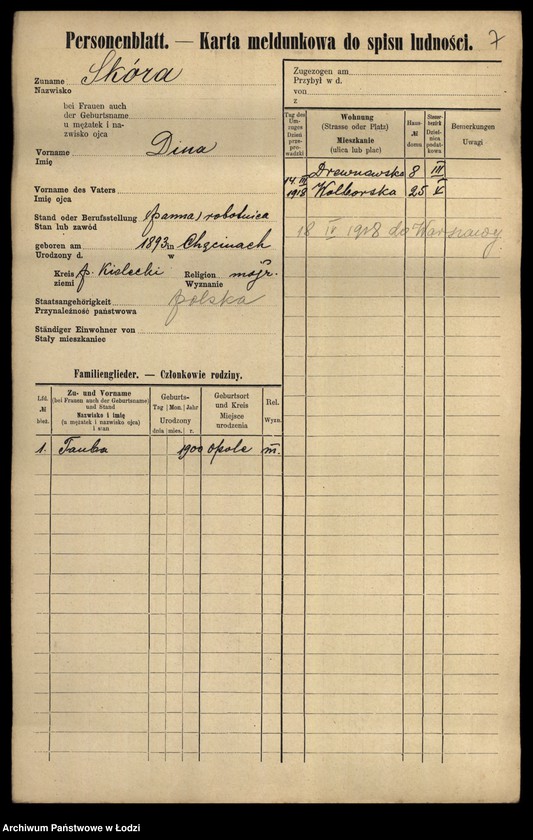 Personenblatt. — Karta meldunkowa do spisu ludności. 7
Zuname Skóra
Nazwisko
bei Frauen auch
der Geburtsname
u mężatek i na-
zwisko ojca
Vorname Dina
Imię
Vorname des Vaters
Imię ojca
Stand oder Berufsstellung (panna) robotnica
Stan lub zawód
geboren am 1893 in Chęcinach
Urodzony d. w
Kreis p. Kielecki Religion mojż.
ziemi Wyznanie
Staatsangehörigkeit polska
Przynależność państwowa
Ständiger Einwohner von
Stały mieszkaniec
Zugezogen am
Przybył w d.
von
z
Tag des Um-zuges Dzień przepro-wadzki
Wohnung
(Strasse oder Platz)
Mieszkanie
(ulica lub plac)
Haus-
№
domu
Steuer-bezirk Dzielnica podat-kowa
Bemerkungen
Uwagi
Drewnowska 8 III
14. III 1918 Wolborska 25 V
18 IV 1918 do Warszawy
Familienglieder. — Członkowie rodziny.
Lfd.
№
bież.
Zu- und Vorname
(bei Frauen auch der Geburtsname)
und Stand
Nazwisko i imię
(u mężatek i nazwisko ojca)
i stan
Geburts-
Tag Mon. Jahr
Urodzony
dnia mies. r.
Geburtsort
und Kreis
Miejsce
urodzenia
Rel.
Wyzn.
1. Tauba 1900 Opole m.
Archiwum Państwowe w Łodzi